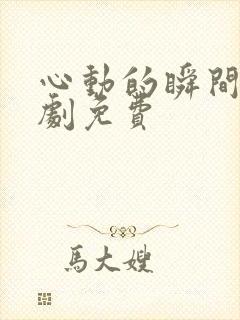 心動的瞬間
劇免費
馬大嫂